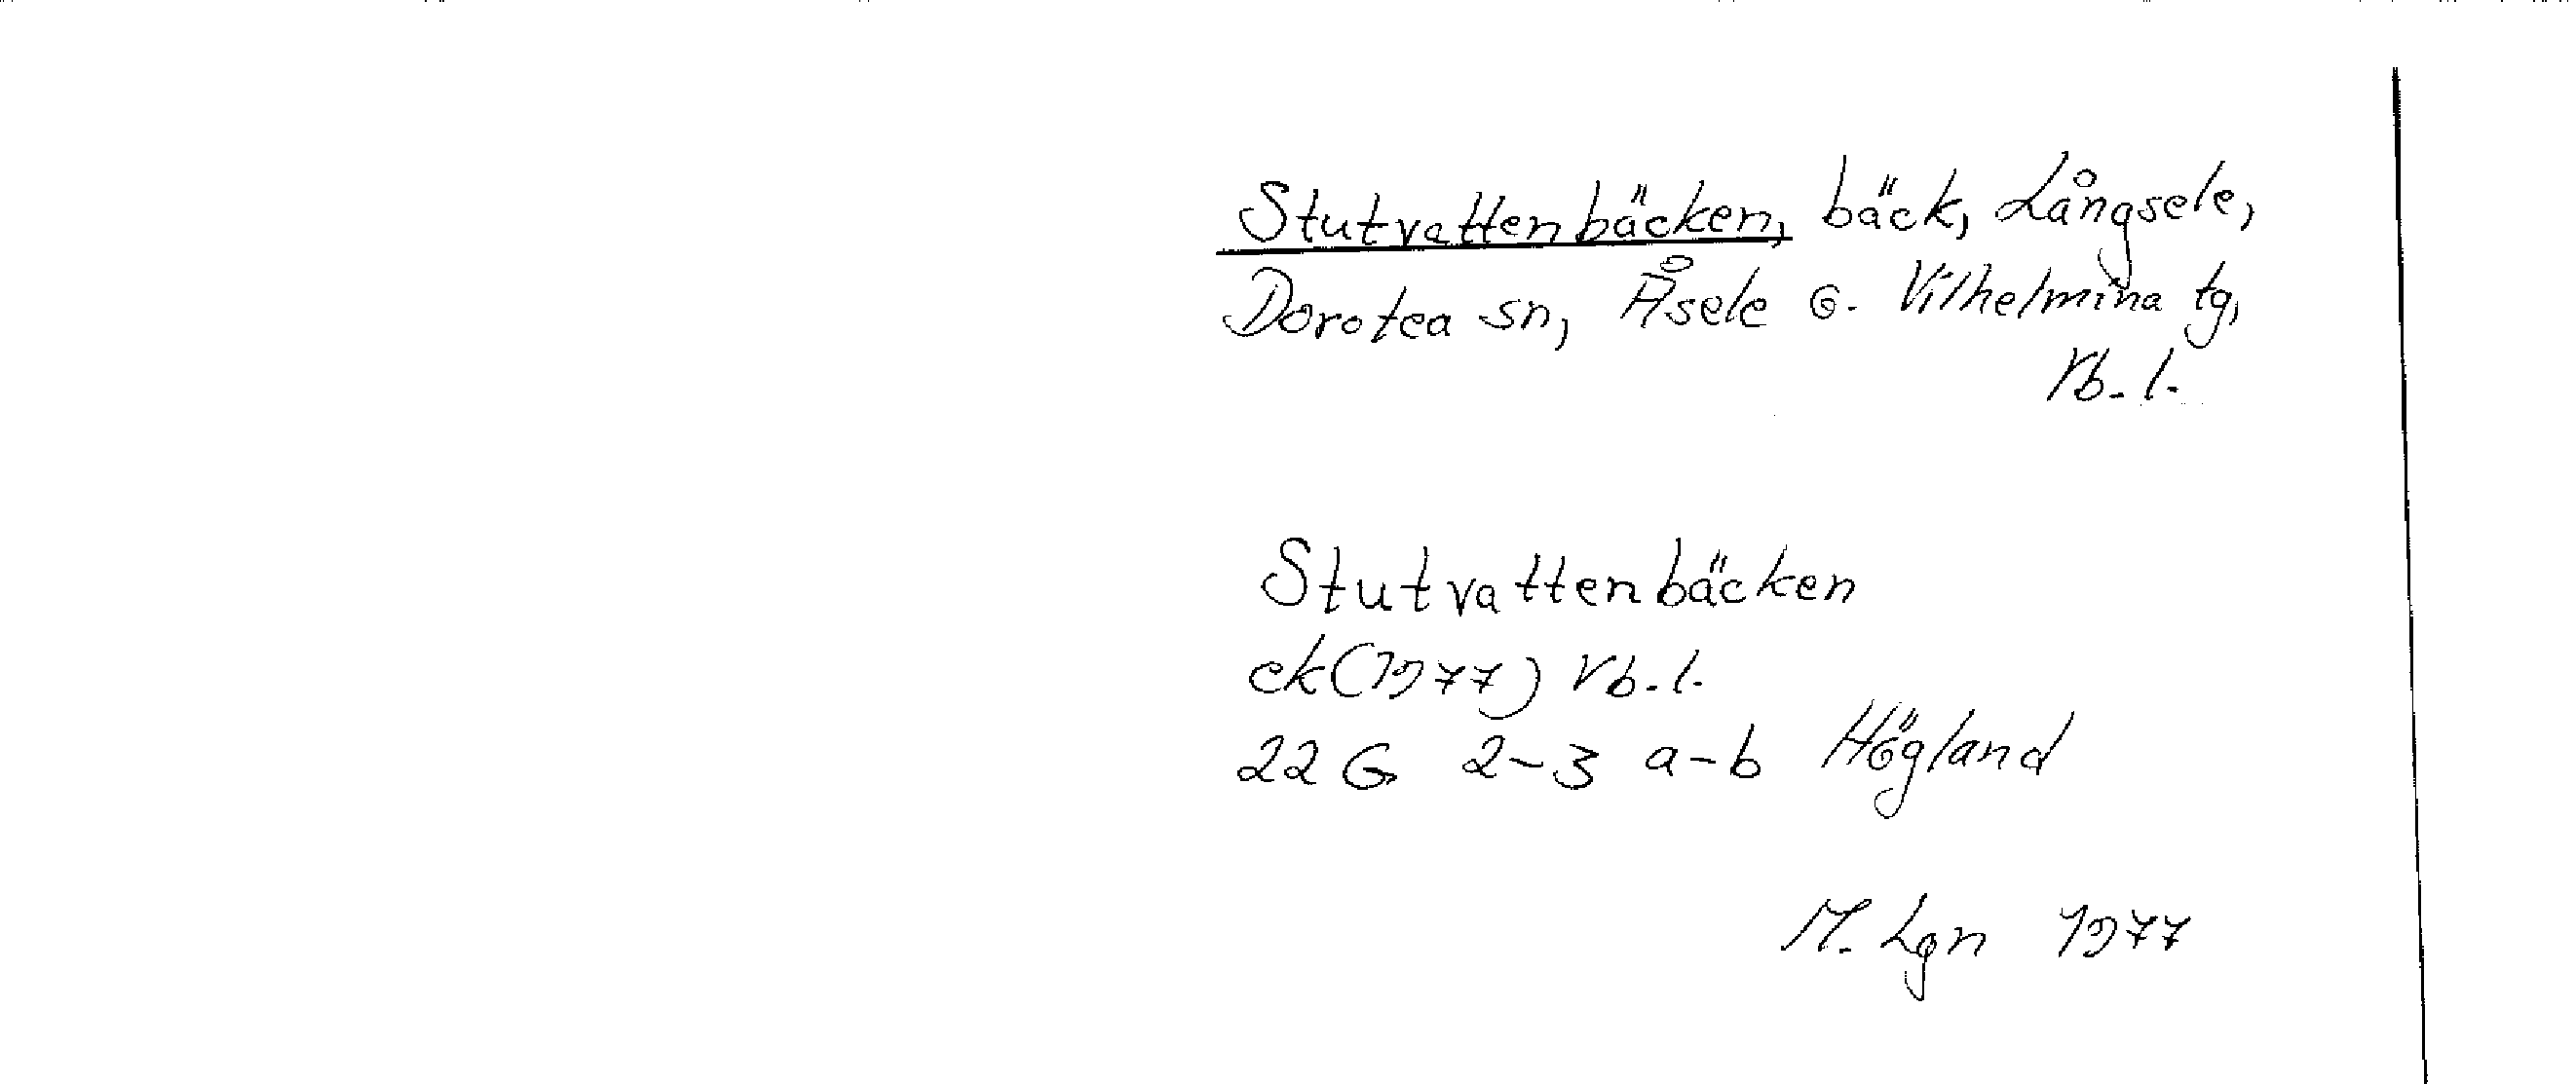 Stutvattenbäcken, bäck, Långsele,
Dorotea sn, Åsele o. Vilhelmina tg,
Vb. l.
Stutvattenbäcken
ek (1977) Vb. l.
22 G 2-3 a-b Högland
M. Lgn 1977